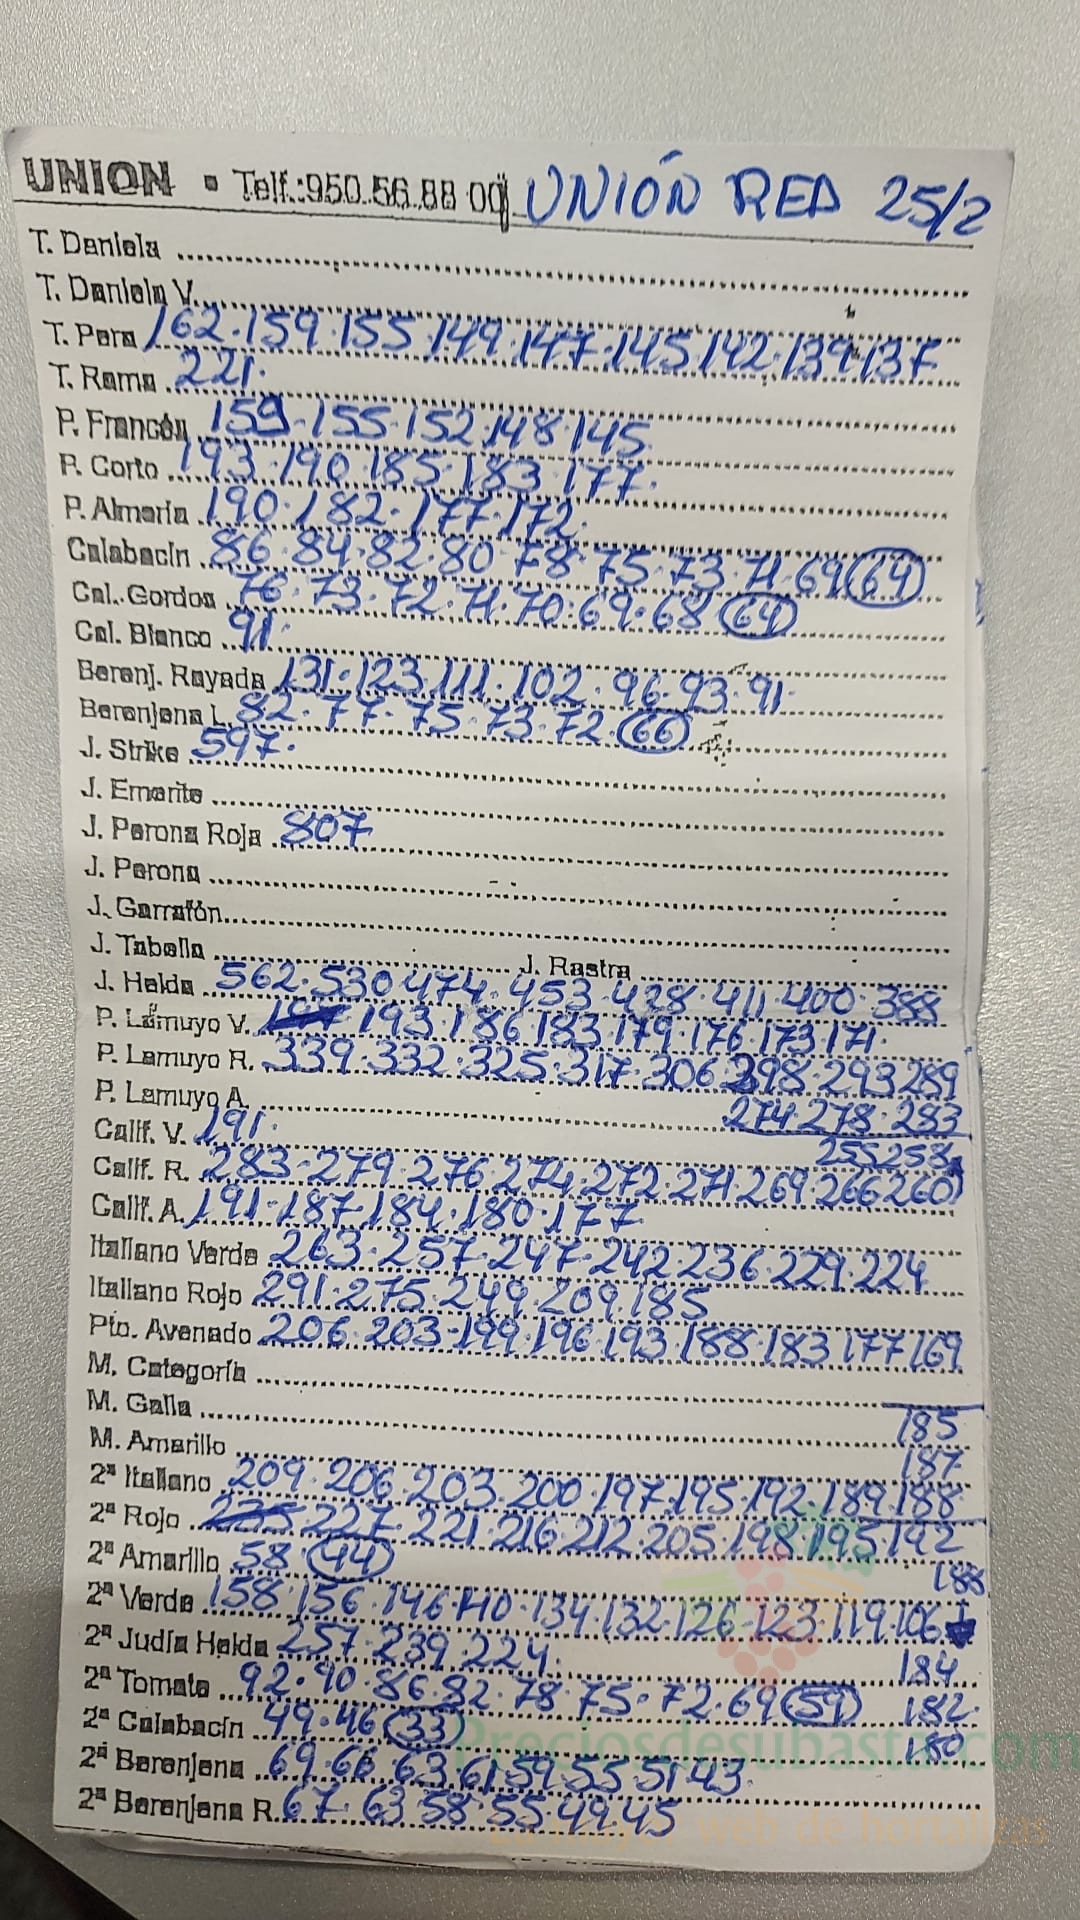 UNION ▪ Telf.:950.56.88 00 UNIÓN RED 25/2
T. Daniela
T. Daniela V.
T. Pera 162.159.155.149.147.145.142.139.137
T. Rama 221.
P. Francés 159.155.152.148.145
P. Corto 193.190.185.183.177.
P. Almería 190.182.177.172.
Calabacín 86.84.82.80.78.75.73.71.69 (64)
Cal. Gordos 76.73.72.71.70.69.68 (64)
Cal. Blanco 91.
Berenj. Rayada 131.123.111.102.96.93.91.
Berenjena L. 82.77.75.73.72. (66)
J. Strike 597.
J. Emerite
J. Perona Roja 807
J. Perona
J. Garrafón
J. Tabella J. Rastra
J. Helda 562.530.474.453.428.411.400.388
P. Lamuyo V. 193.186.183.179.176.173.171.
P. Lamuyo R. 339.332.325.317.306.298.293.289
P. Lamuyo A. 274.278.283
Calif. V. 191. 255.258
Calif. R. 283.279.276.274.272.271.269.266.260
Calif. A. 191.187.184.180.177
Italiano Verde 263.257.247.242.236.229.224
Italiano Rojo 291.275.249.209.185
Pto. Avenado 206.203.199.196.193.188.183.177.169
M. Categoría
M. Galla 185
M. Amarillo 187
2ª Italiano 209.206.203.200.197.195.192.189.188
2ª Rojo 235 227.221.216.212.205.198.195.192
2ª Amarillo 58 (44) 188
2ª Verde 158.156.146.140.134.132.126.123.119.106
2ª Judía Helda 257.239.224. 184
2ª Tomate 92.90.86.82.78.75.72.69 (59) 182
2ª Calabacín 49.46 (33) 180
2ª Berenjena 69.66.63.61.59.55.51.43.
2ª Berenjena R. 67.63.58.55.49.45
Preciosdesubasta.com
web de hortalizas